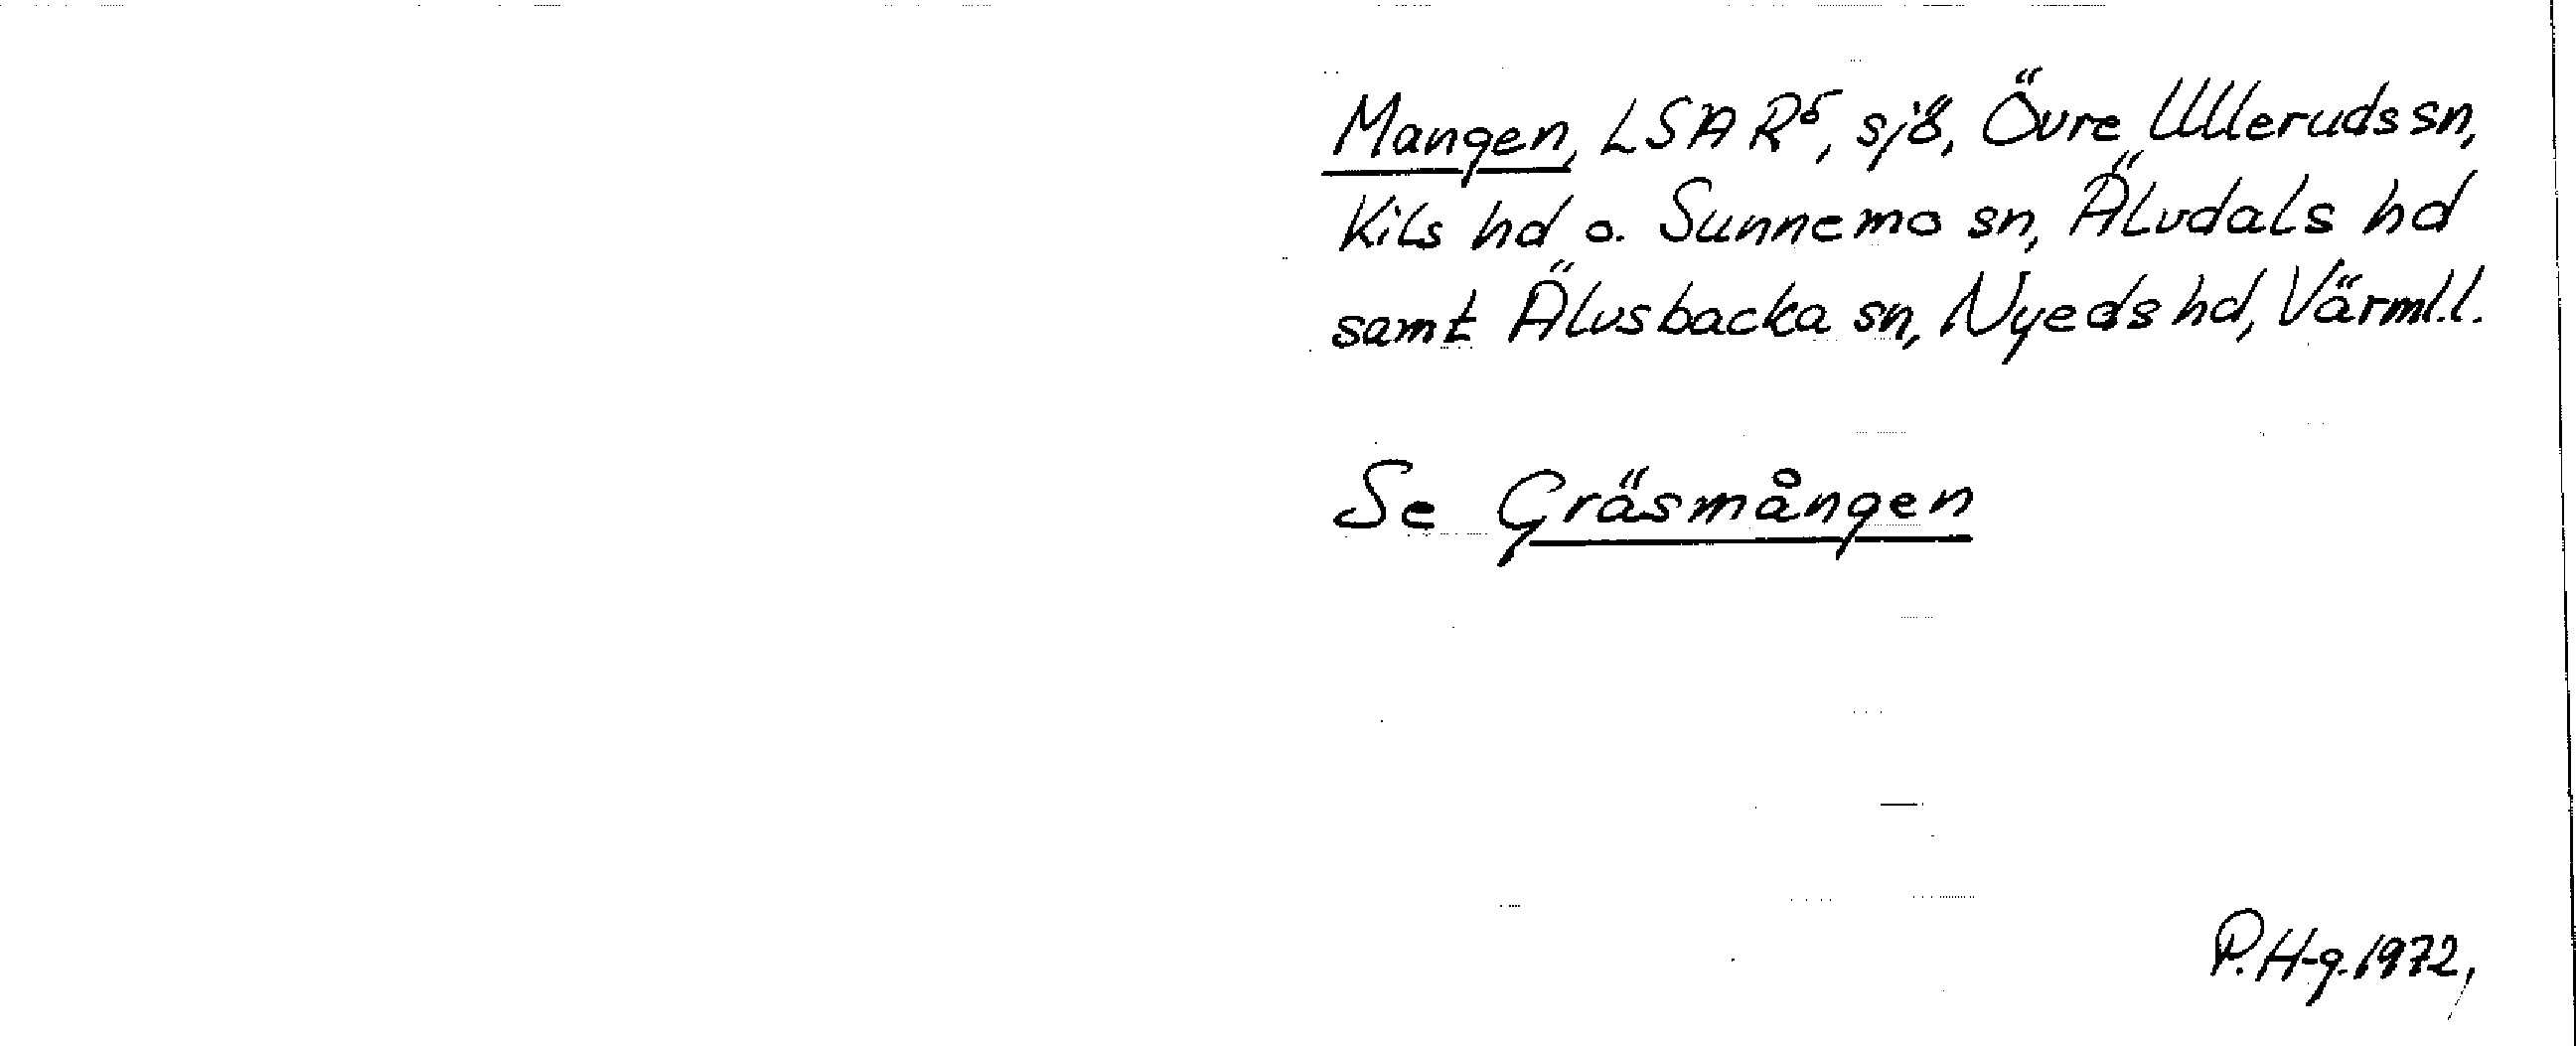 Mangen, LSA R⁵, sjö, Övre Ulleruds sn,
Kils hd o. Sunnemo sn, Älvdals hd
samt Älvsbacka sn, Nyeds hd, Värml.l.
Se Gräsmången
P. H-g. 1972,